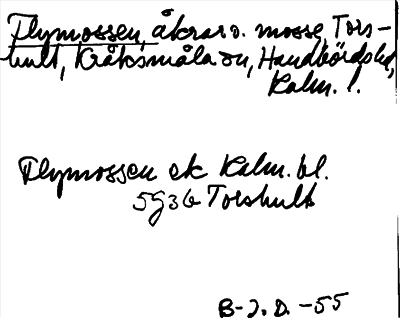 Flymossen, åkrar o. mosse, Tors-
hult, Kråksmåla sn, Handbörds hd,
Kalm. l.
Flymossen ek Kalm. bl.
5g36 Torshult
B-J. D. -55